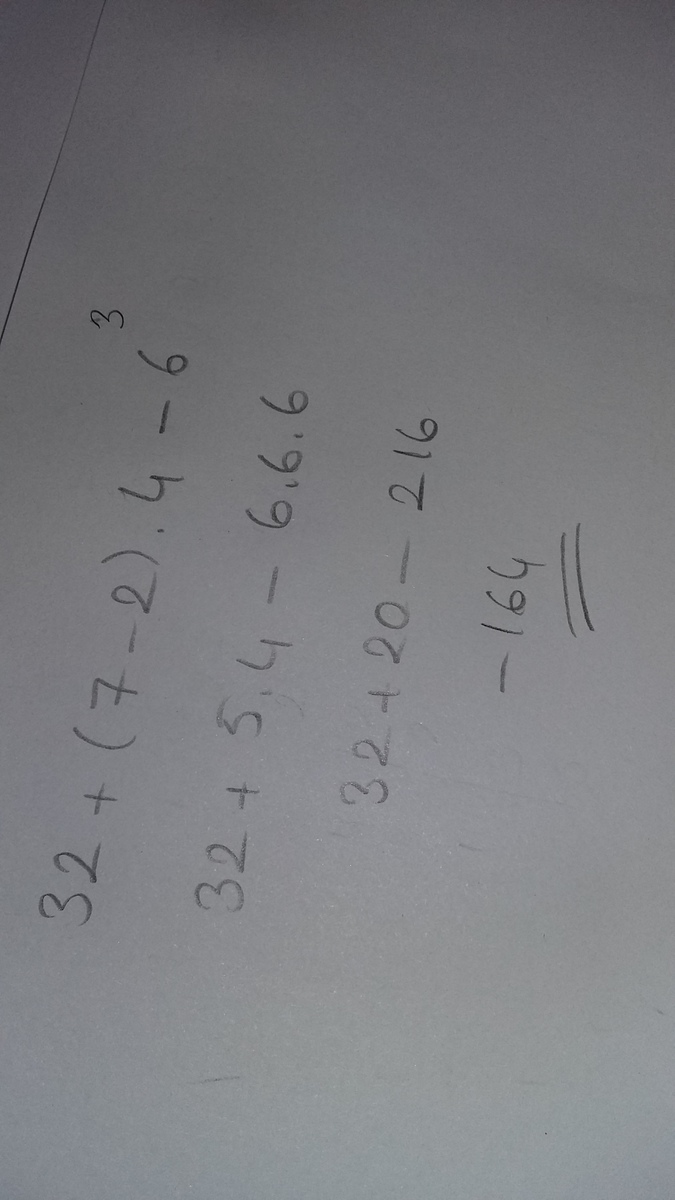 32 + (7 - 2) . 4 - 6³
32 + 5.4 - 6.6.6
32 + 20 - 216
- 164